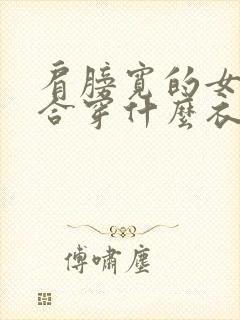 肩膀寬的女
合穿什麼衣
傅嘯塵